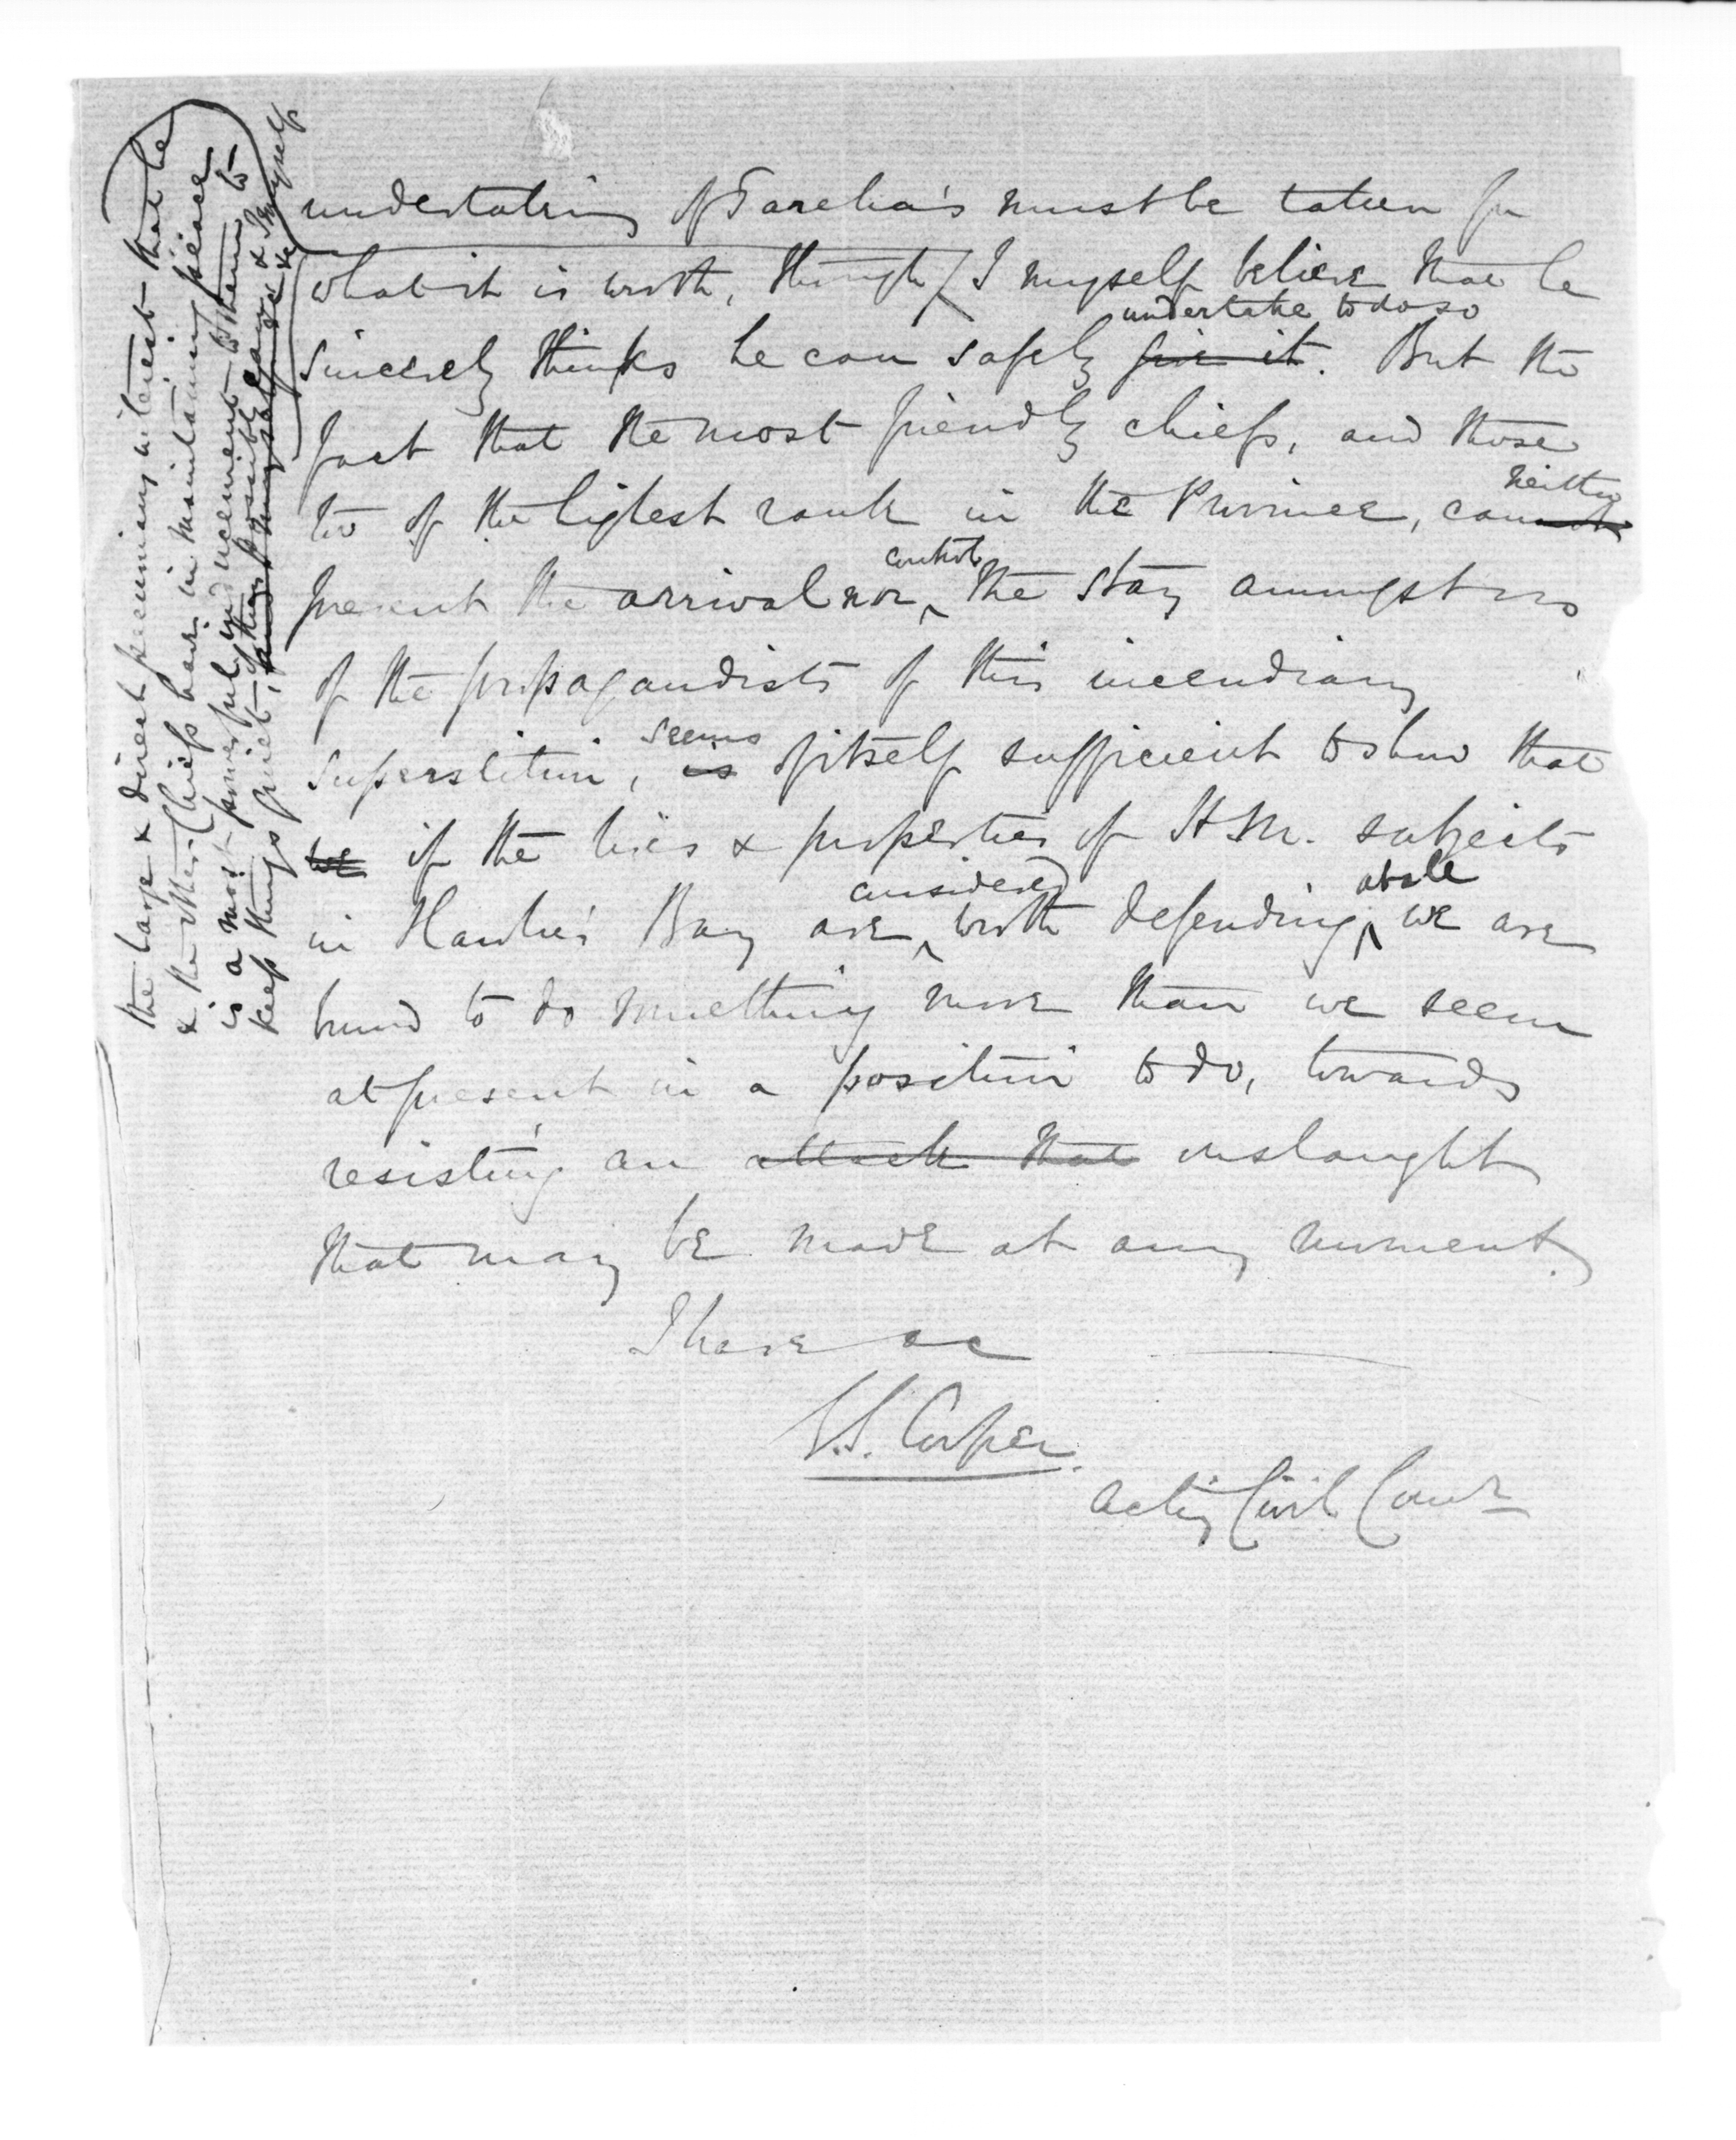 undertaking of Tareha's must be taken for
what it is worth, though / I myself believe that he
undertake to do so
sincerely thinks he can safely give it. But the
fact that the most friendly chiefs, and those
neither
too of the highest rank in the Province, cannot
control
prevent the arrival nor ‸ the stay amongst us
of the propagandists of this incendiary
seems
superstition, is of itself sufficient to show that
we if the lives & properties of H.M. subjects
considered able
in Hawke's Bay are ‸ worth defending ‸ we are
bound to do something more than we seem
at present in a position to do, towards
resisting an attack that onslaught
that may be made at any moment.
I have &c
G.S. Cooper.
Acting Civil Commr
the large & direct pecuniary interest that he
& the other Chiefs have in maintaining peace
is a most powerful inducement to them to
keep things quiet, if they possibly can & I myself